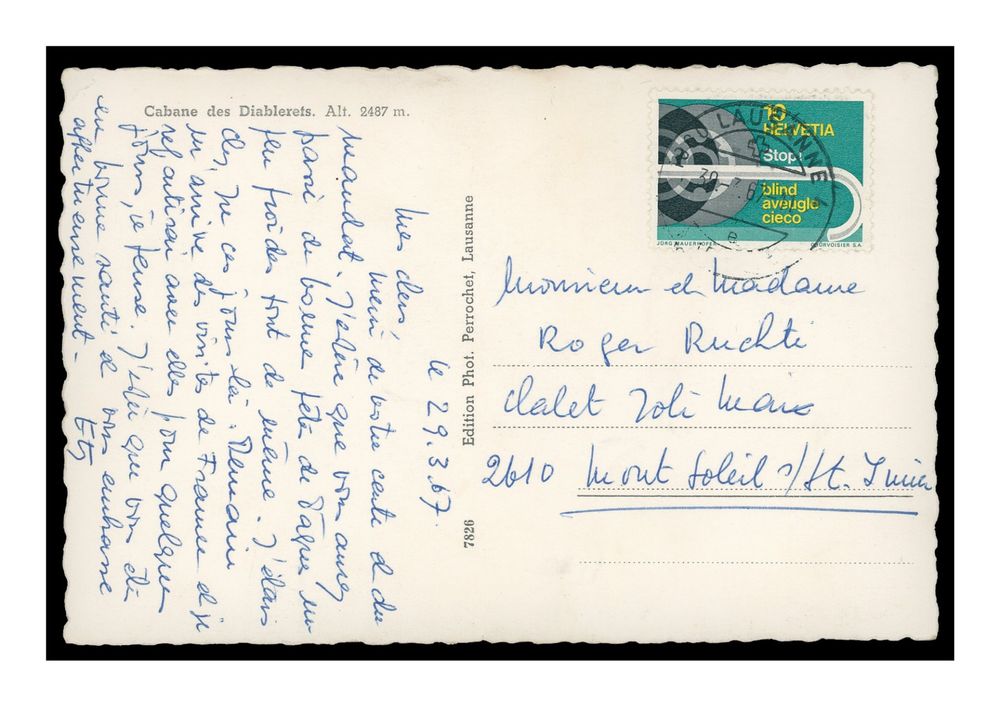 Cabane des Diablerets. Alt. 2487 m.
le 29.3.67.
Mes chers
Merci de votre carte et du
mandat. J'espère que vous avez
passé de bonne fêtes de Pâques un
peu froides tout de même. J'étais
chez ces jours-là. Demain
m'arrive des visites de France et je
repartirai avec elles pour quelques
jours, je pense. J'espère que vous êtes
en bonne santé et vous embrasse
affectueusement -
Edition Phot. Perrochet, Lausanne
7826
10
HELVETIA
Stop!
blind
aveugle
cieco
JÖRG MAUERHOFER
COURVOISIER S.A.
LAUSANNE
Monsieur et Madame
Roger Ruchti
Chalet Joli Mais
2610 Mont Soleil s/St. Imier